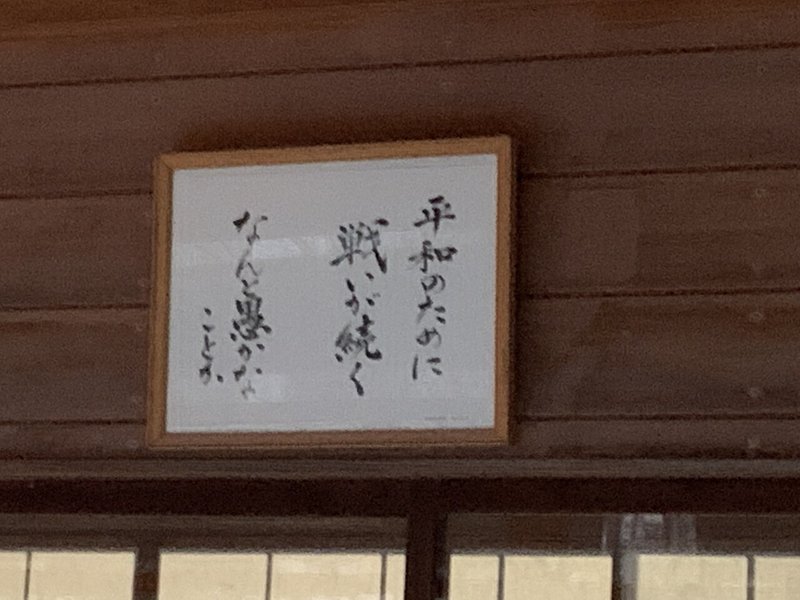 平和のために
戦いが続く
なんと愚かな
ことか